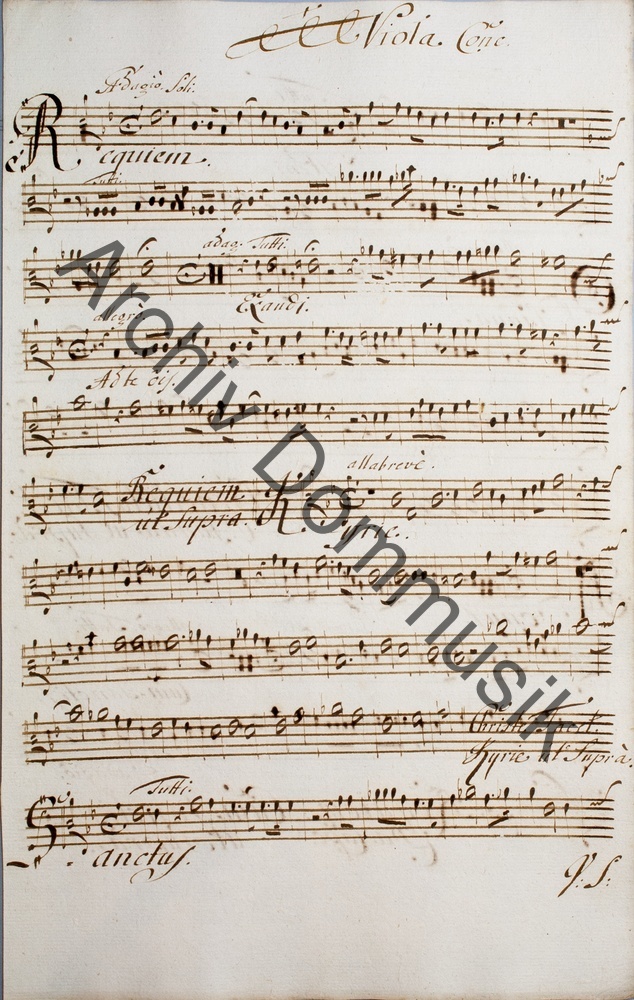 Viola Conc:
Adagio. Soli.
Requiem.
Tutti.
adag. Tutti.
Exaudi.
allegro
Ad te o͞is.
Requiem
ut Supra.
allabreve.
Kyrie.
Christe Tacet.
Kyrie ut Suprà.
Tutti.
Sanctus.
V: S:
Archiv Dommusik